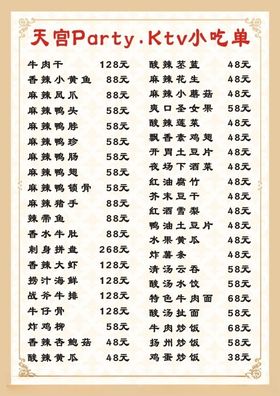 天宫Party.Ktv小吃单
牛肉干 128元
香辣小黄鱼 88元
麻辣凤爪 88元
麻辣鸭头 58元
麻辣鸭脖 58元
麻辣鸭珍 58元
麻辣鸭肠 58元
麻辣鸭翅 58元
麻辣鸭锁骨 58元
麻辣猪手 88元
辣带鱼 88元
香水牛肚 88元
刺身拼盘 268元
香辣大虾 128元
捞汁海鲜 128元
战斧牛排 128元
牛仔骨 128元
炸鸡柳 58元
香辣杏鲍菇 48元
酸辣黄瓜 48元
酸辣茎蓝 48元
麻辣花生 48元
麻辣小蘑菇 48元
爽口圣女果 58元
酸辣莲菜 48元
飘香素鸡翅 48元
开胃土豆片 48元
夜场下酒菜 48元
红油腐竹 48元
芥末豆干 48元
红酒雪梨 48元
鸭油土豆片 48元
水果黄瓜 48元
炸薯条 48元
清汤云吞 58元
酸汤水饺 58元
特色牛肉面 68元
酸汤扯面 58元
牛肉炒饭 68元
扬州炒饭 58元
鸡蛋炒饭 38元